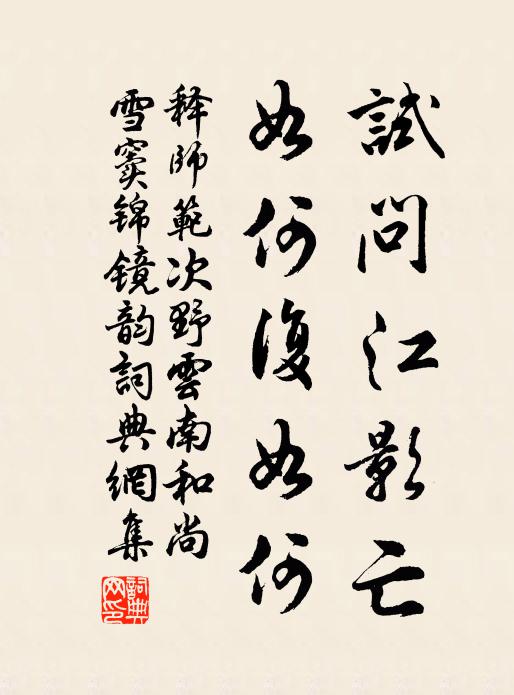 試問江影亡
如何復如何
释師範次野雲南和尚
雪窦锦镜韵詞典網集
詞典網印